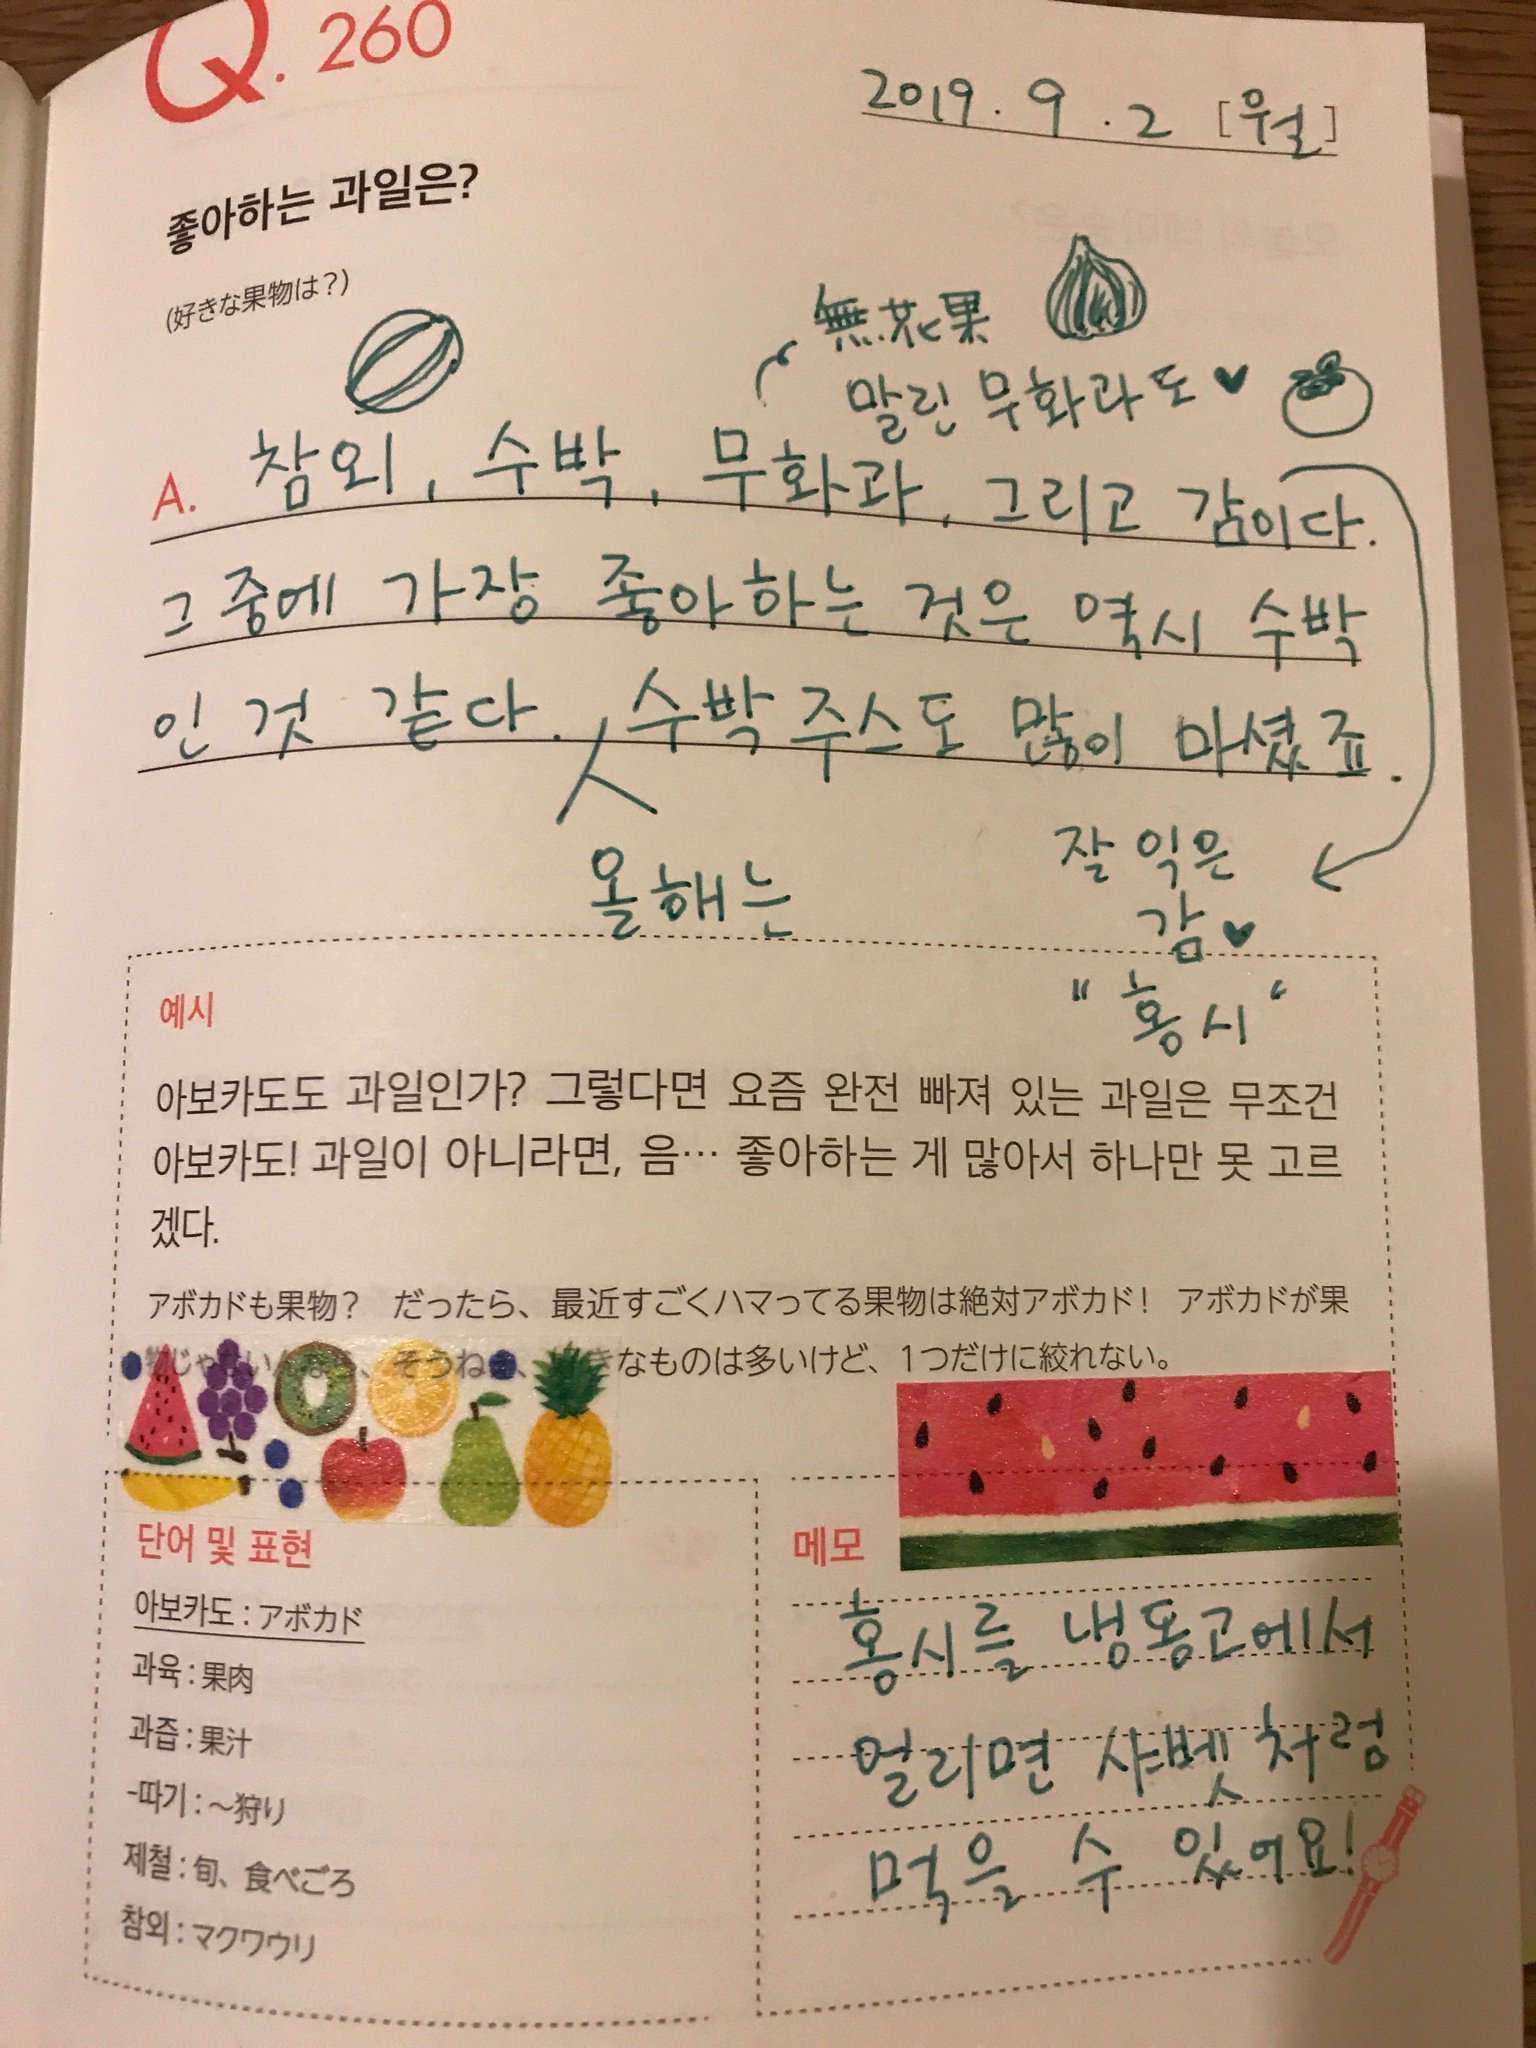 Q. 260
2019. 9. 2 [월]
좋아하는 과일은?
(好きな果物は？)
無花果
말린 무화과도♥
A. 참외, 수박, 무화과, 그리고 감이다.
그 중에 가장 좋아하는 것은 역시 수박
인 것 같다. 수박 주스도 많이 마셨죠.
올해는
잘 익은
감♥
"홍시"
예시
아보카도도 과일인가? 그렇다면 요즘 완전 빠져 있는 과일은 무조건
아보카도! 과일이 아니라면, 음… 좋아하는 게 많아서 하나만 못 고르
겠다.
アボカドも果物？ だったら、最近すごくハマってる果物は絶対アボカド！ アボカドが果
物じゃないんなら、そうねぇ、好きなものは多いけど、1つだけに絞れない。
단어 및 표현
아보카도 : アボカド
과육 : 果肉
과즙 : 果汁
-따기 : ～狩り
제철 : 旬、食べごろ
참외 : マクワウリ
메모
홍시를 냉동고에서
얼리면 샤벳처럼
먹을 수 있어요!